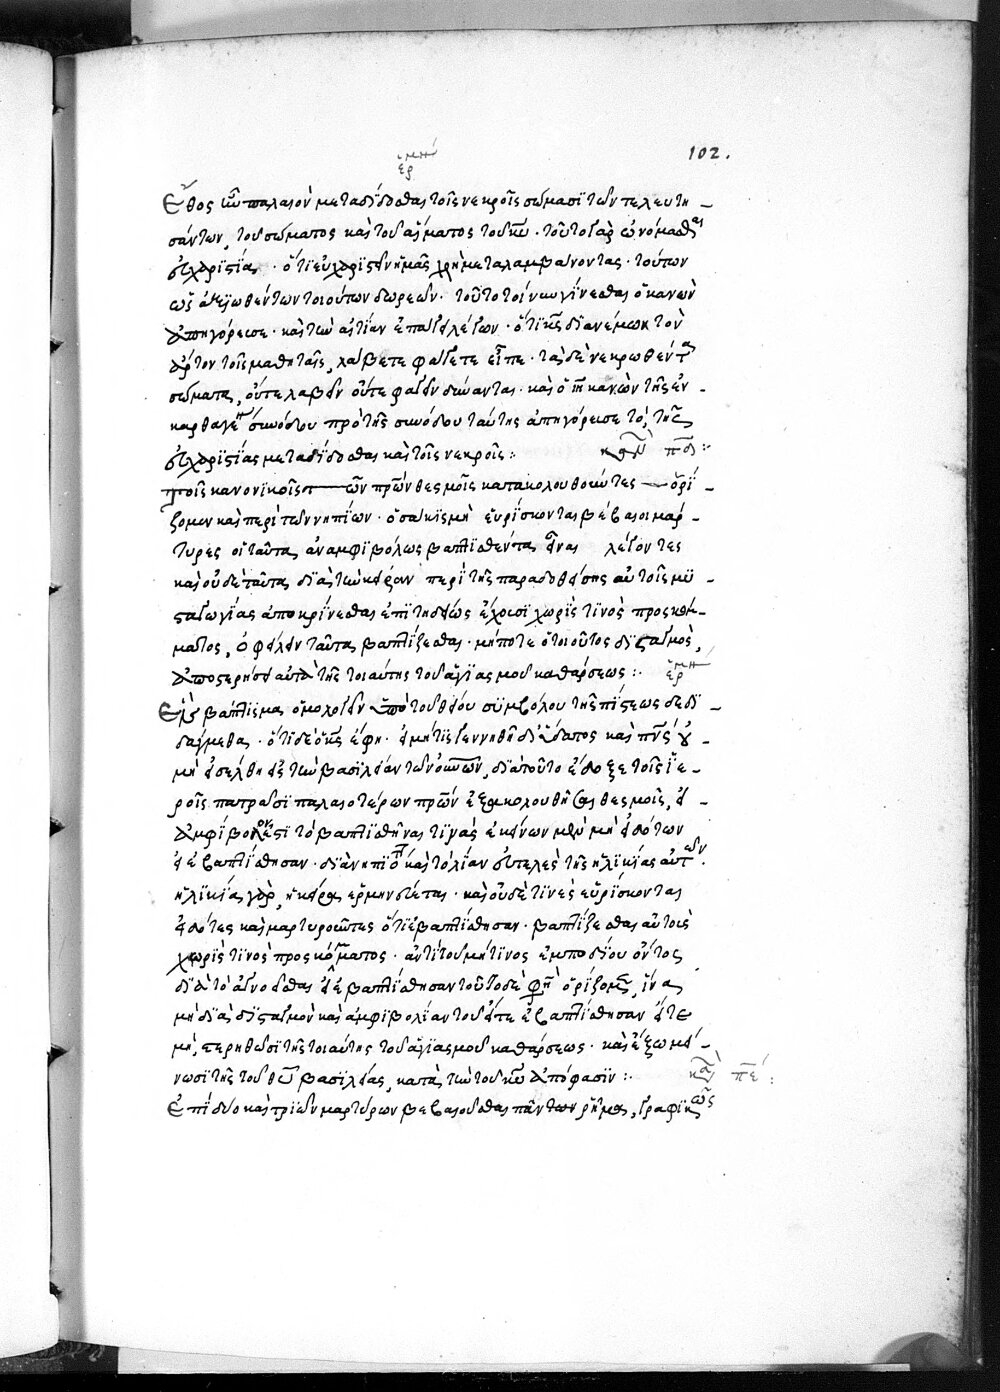 102.
ἑρμη
Ἔθος ἦν παλαιὸν μεταδίδοσθαι τοῖς νεκροῖς σώμασϊ τῶν τελευτη
σάντων, τοῦ σώματος καὶ τοῦ αἵματος τοῦ κυ · τοῦτο γὰρ ὠνόμασθαι
εὐχαριστία · ὅτι εὐχαριστεῖν ἡμᾶς χρὴ μεταλαμβάνοντας · τούτων
ὡς ἀξιωθέντων τοιούτων δωρεῶν · τοῦτο τοίνυν γίνεσθαι ὁ κανὼν
ἀπηγόρευσε · καὶ τὴν αἰτίαν ἐπάγει λέγων · ὅτι κς διανέμων τὸν
ἄρτον τοῖς μαθηταῖς, λάβετε φάγετε εἶπε · τὰ δὲ νεκρωθέντα
σώματα, οὔτε λαβεῖν οὔτε φαγεῖν δύνανται · καὶ ὁ κανὼν τῆς ἐν
καρθαγένη συνόδου πρὸ τῆς συνόδου ταύτης ἀπηγόρευσε τὸ, τῆς
εὐχαριστίας μεταδίδοσθαι καὶ τοῖς νεκροῖς :
κανὼν πδ :
τοῖς κανονικοῖς τῶν πρων θεσμοῖς κατακολουθοῦντες ὁρί
ζομεν καὶ περὶ τῶν νηπίων · ὁσάκις μὴ εὑρίσκονται βέβαιοι μάρ
τυρες οἱ ταῦτα, ἀναμφιβόλως βαπτισθέντα εἶναι λέγοντες
καὶ οὐδὲ ταῦτα, διὰ τὴν ἡλικίαν περὶ τῆς παραδοθείσης αὐτοῖς μυ
σταγωγίας ἀποκρίνεσθαι ἐπιτηδείως ἔχουσϊ χωρὶς τινὸς προσκόμ
ματος, ὀφείλειν ταῦτα, βαπτίζεσθαι · μήποτε ὁ τοιοῦτος δισταγμὸς,
ἀποστερήσῃ αὐτὰ τῆς τοιαύτης τοῦ ἁγιασμοῦ καθάρσεως :
ἑρμη
Ἓν βάπτισμα ὁμολογεῖν ἀπὸ τοῦ θείου συμβόλου τῆς πίστεως δεδι
δάγμεθα · ὅτι δὲ ὁ κς ἔφη · εἰ μή τις γεννηθῇ δι' ὕδατος καὶ πνς οὐ
μὴ εἰσέλθῃ εἰς τὴν βασιλείαν τῶν οὐνων, διὰ τοῦτο ἔδοξε τοῖς ἱε
ροῖς πατράσι παλαιοτέρων πρων ἐξακολουθῆσαι θεσμοῖς, εἰ
ἀμφίβολόν ἐστι τὸ βαπτισθῆναι τινὰς ἐκείνων μὲν μὴ εἰδότων
εἰ ἐβαπτίσθησαν · διὰ νηπιότητα καὶ τὸ λίαν ἀτελὲς τῆς ἡλικίας αὐτῶν ·
ἡλικία γὰρ, ἡ κείρα ἑρμηνεύεται · καὶ οὐδὲ τινὲς εὑρίσκονται
εἰδότες καὶ μαρτυροῦντες ὅτι ἐβαπτίσθησαν · βαπτίζεσθαι αὐτοὺς
χωρὶς τινὸς προσκόμματος · ἀντὶ τοῦ μή τινος ἐμποδίου ὄντος
διὰ τὸ ἀγνοεῖσθαι εἰ ἐβαπτίσθησαν τοῦτο δὲ φησὶ ὁρίζομεν, ἵνα
μὴ διὰ δισταγμὸν καὶ ἀμφιβολίαν τοῦ εἴτε ἐβαπτίσθησαν εἴτε
μὴ, στερηθῶσϊ τῆς τοιαύτης τοῦ ἁγιασμοῦ καθάρσεως · καὶ ἔξω μεί
νωσϊ τῆς τοῦ θυ βασιλείας, κατὰ τὴν τοῦ κυ ἀπόφασϊν :
κανὼν πε :
Ἐπὶ δύο καὶ τριῶν μαρτύρων βεβαιοῦσθαι πάντων ῥῆμα, γραφικῶς